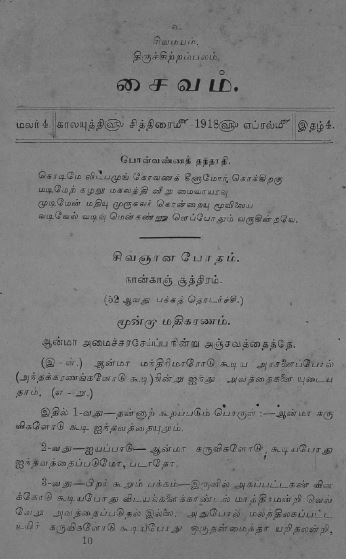 உ
சிவமயம்.
திருச்சிற்றம்பலம்.
சைவம்.
மலர் 4. காலயுத்தி௵ சித்திரை௴ 1918௵ ஏப்ரல்௴ இதழ் 4.
பொன்வண்ணத் தந்தாதி.
கொடிமே விடபமுங் கோவணக் கீளுமோர் கொக்கிறகு
வடிவேல் வடிவு மென்கண்ணு ளெப்போதும் வருகின்றவே.
சிவஞான போதம்.
நான்காஞ் சூத்திரம்.
(52 ஆவது பக்கத் தொடர்ச்சி.)
மூன்று மதிகரணம்.
ஆன்மா அமைச்சரசேய்ப்ப நின்று அஞ்சவத்தைத்தே.
(இ-ள்.) ஆன்மா மந்திரிமாரோடு கூடிய அரசனைப்போல்
(அந்தக்கரணங்களோடு கூடி) நின்று ஐந்து அவத்தைகளை யுடைய
தாம், (எ-று.)
இதில் 1-வது—தன்னாற் கூறப்படும் பொருள் :— ஆன்மா கரு
விகளோடு கூடி ஐந்தவத்தையுறும்.
2-வது—ஐயப்பாடு— ஆன்மா கருவிகளோடு கூடியபோது
ஐந்தவத்தைப்படுமோ, படாதோ.
3-வது—பிறர் கூறும் பக்கம்—இருளில் அகப்பட்டகண் விள
க்கோடு கூடியபோது விடயங்களைக்காண்டல் மாத்திரமன்றி வெவ்
வேறு அவத்தைப்படுதல் இல்லை. அதுபோல் மலத்திலகப்பட்ட
உயிர் கருவிகளோடு கூடியபோது ஒருதன்மைத்தா யறிதலன்றி,
10